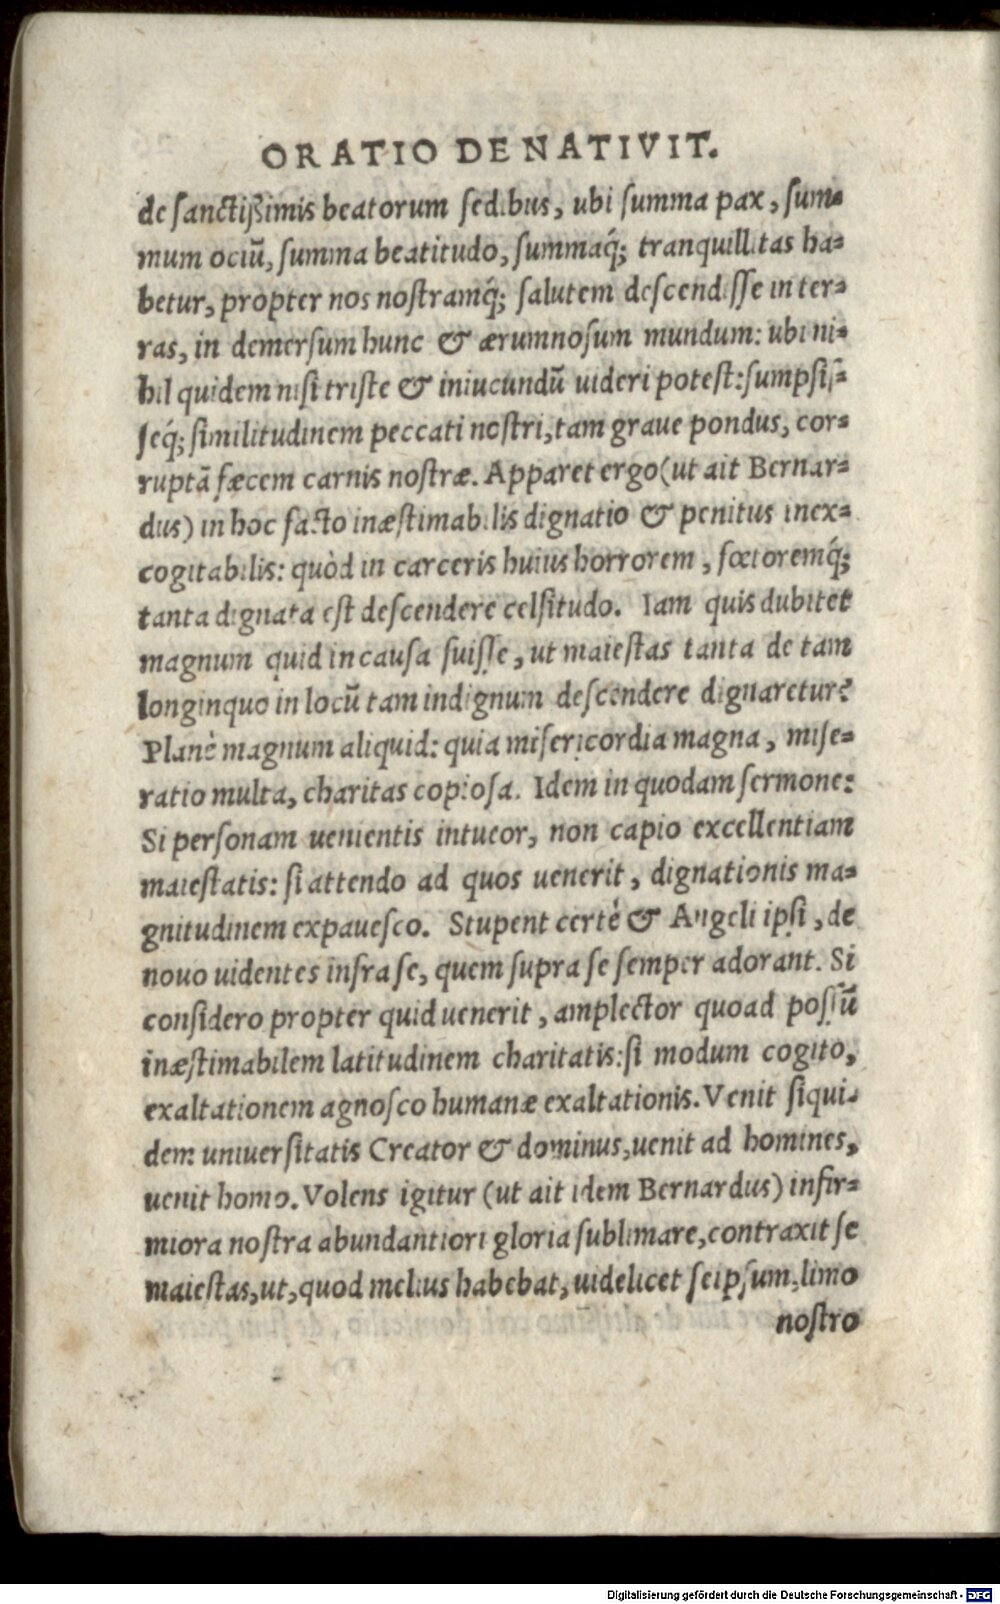 ORATIO DE NATIVIT.
de sanctißimis beatorum sedibus, ubi summa pax, sum=
mum ociū, summa beatitudo, summaq́; tranquillitas ha=
betur, propter nos nostramq́; salutem descendisse in ter=
ras, in demersum hunc & ærumnosum mundum: ubi ni=
hil quidem nisi triste & iniucundū uideri potest: sumpsis=
seq́; similitudinem peccati nostri, tam graue pondus, cor=
ruptā fæcem carnis nostræ. Apparet ergo (ut ait Bernar=
dus) in hoc facto inæstimabilis dignatio & penitus inex=
cogitabilis: quòd in carceris huius horrorem, fœtoremq́;
tanta dignata est descendere celsitudo. Iam quis dubitet
magnum quid in causa fuisse, ut maiestas tanta de tam
longinquo in locū tam indignum descendere dignaretur?
Planè magnum aliquid: quia misericordia magna, mise=
ratio multa, charitas copiosa. Idem in quodam sermone:
Si personam uenientis intueor, non capio excellentiam
maiestatis: si attendo ad quos uenerit, dignationis ma=
gnitudinem expauesco. Stupent certè & Angeli ipsi, de
nouo uidentes infra se, quem supra se semper adorant. Si
considero propter quid uenerit, amplector quoad possū
inæstimabilem latitudinem charitatis: si modum cogito,
exaltationem agnosco humanæ exaltationis. Venit siqui=
dem uniuersitatis Creator & dominus, uenit ad homines,
uenit homo. Volens igitur (ut ait idem Bernardus) infir=
miora nostra abundantiori gloria sublimare, contraxit se
maiestas, ut, quod melius habebat, uidelicet seipsum, limo
nostro
Digitalisierung gefördert durch die Deutsche Forschungsgemeinschaft - DFG